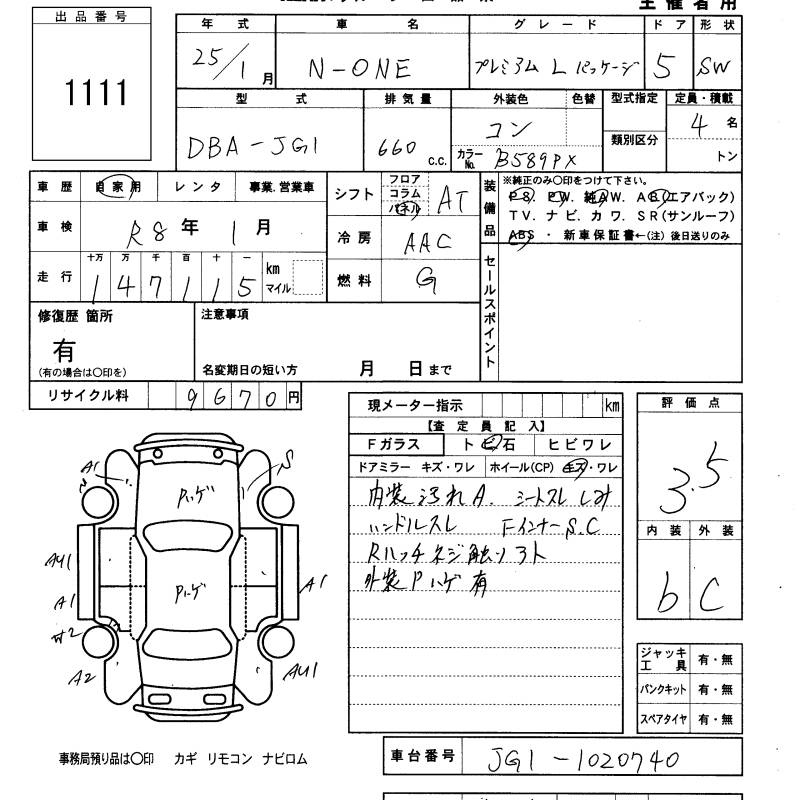 主催者用
出品番号
1111
年式 車名 グレード ドア 形状
25/1月 N-ONE プレミアム L パッケージ 5 SW
型式 排気量 外装色 色替 型式指定 定員・積載
DBA-JG1 660 c.c. コン 類別区分 4 名
カラーNo. B589PX トン
車歴 自家用 レンタ 事業.営業車
車検 R8年 1月
走行 十万 万 千 百 十 一
147115 km マイル
シフト フロア コラム パネル AT
冷房 AAC
燃料 G
装備品
※純正のみ〇印をつけて下さい。
PS. PW. 純AW. AB(エアバック)
TV. ナビ. カワ. SR(サンルーフ)
ABS ・ 新車保証書←(注) 後日送りのみ
セールスポイント
修復歴 箇所
有
(有の場合は〇印を)
注意事項
名変期日の短い方 月 日まで
リサイクル料 9670円
現メーター指示 km
【査定員記入】
Fガラス トビ石 ヒビワレ
ドアミラー キズ・ワレ ホイール(CP) キズ・ワレ
内装汚れA. シートスレ シミ
ハンドルスレ Fインナー S.C
Rハッチ ネジ触り 3ト
外装 Pハゲ 有
評価点
3.5
内装 外装
b C
ジャッキ工具 有・無
パンクキット 有・無
スペアタイヤ 有・無
A1 S
Pハゲ
AY1
Pハゲ
A1 A1
サ2
A2 AY1
事務局預り品は〇印 カギ リモコン ナビロム
車台番号 JG1-1020740